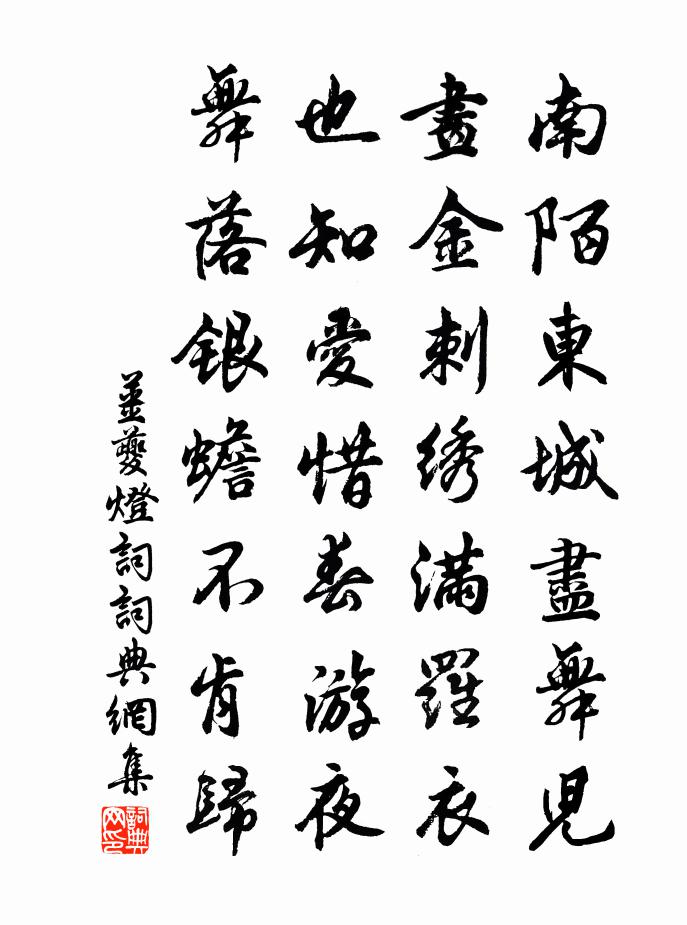 南陌東城盡舞兒
畫金刺綉滿羅衣
也知愛惜春游夜
舞落銀蟾不肯歸
姜夔燈詞詞典網集
詞典网印